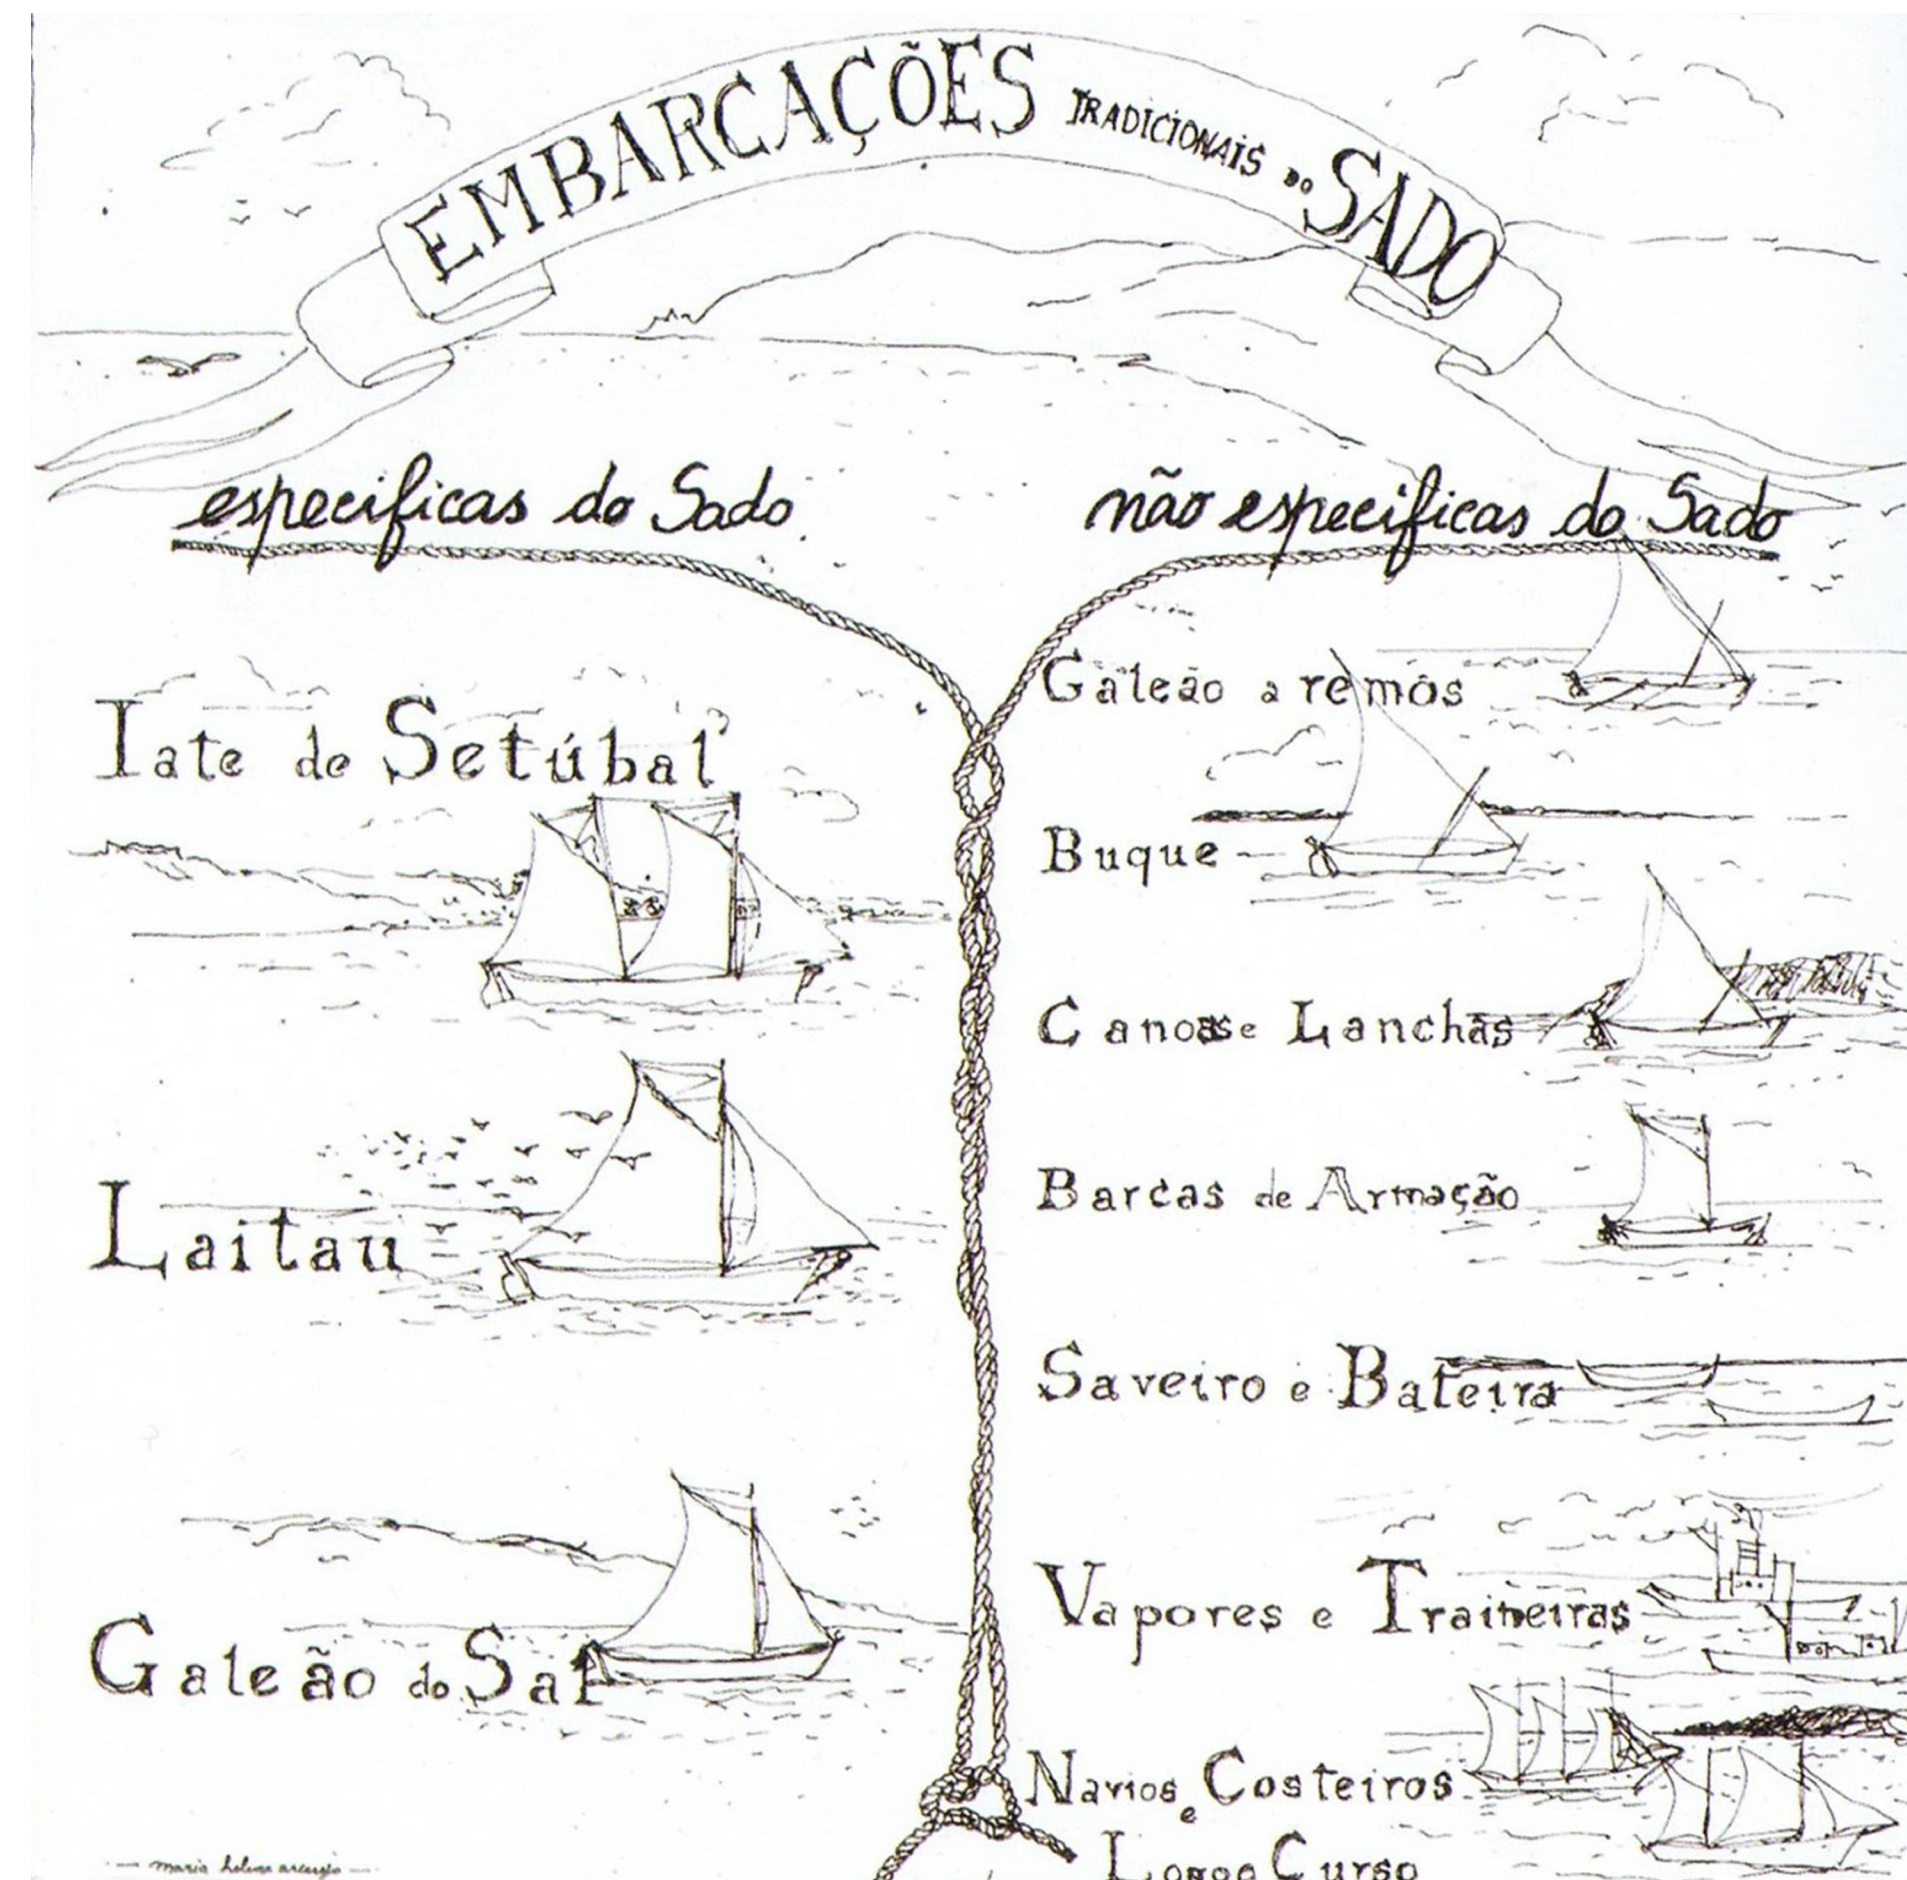 EMBARCAÇÕES TRADICIONAIS DO SADO
especificas do Sado
Iate de Setúbal
Laitau
Galeão do Sal
maria helena
não especificas do Sado
Galeão a remos
Buque
Canoas e Lanchas
Barcas de Armação
Saveiro e Bateira
Vapores e Traineiras
Navios Costeiros
e
Longo Curso